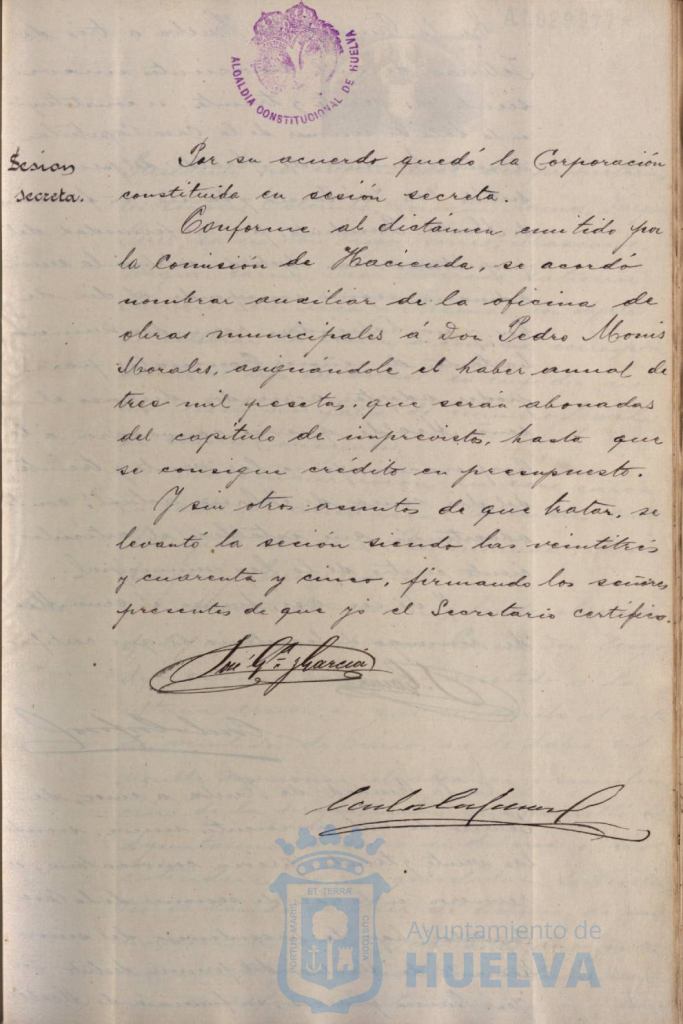 ALCALDIA CONSTITUCIONAL DE HUELVA
Sesion
secreta.
Por su acuerdo quedó la Corporación
constituida en sesión secreta.
Conforme al dictámen emitido por
la Comisión de Hacienda, se acordó
nombrar auxiliar de la oficina de
obras municipales á Don Pedro Monis
Morales, asignándole el haber anual de
tres mil pesetas, que serán abonadas
del capítulo de imprevistos, hasta que
se consigue crédito en presupuesto.
Y sin otros asuntos de que tratar, se
levantó la sesión siendo las veintitrés
y cuarenta y cinco, firmando los señores
presentes de que yo el Secretario certifico.
José Gª y García
PORTUS MARIS
ET TERRÆ
CUSTODIA
Ayuntamiento de
HUELVA